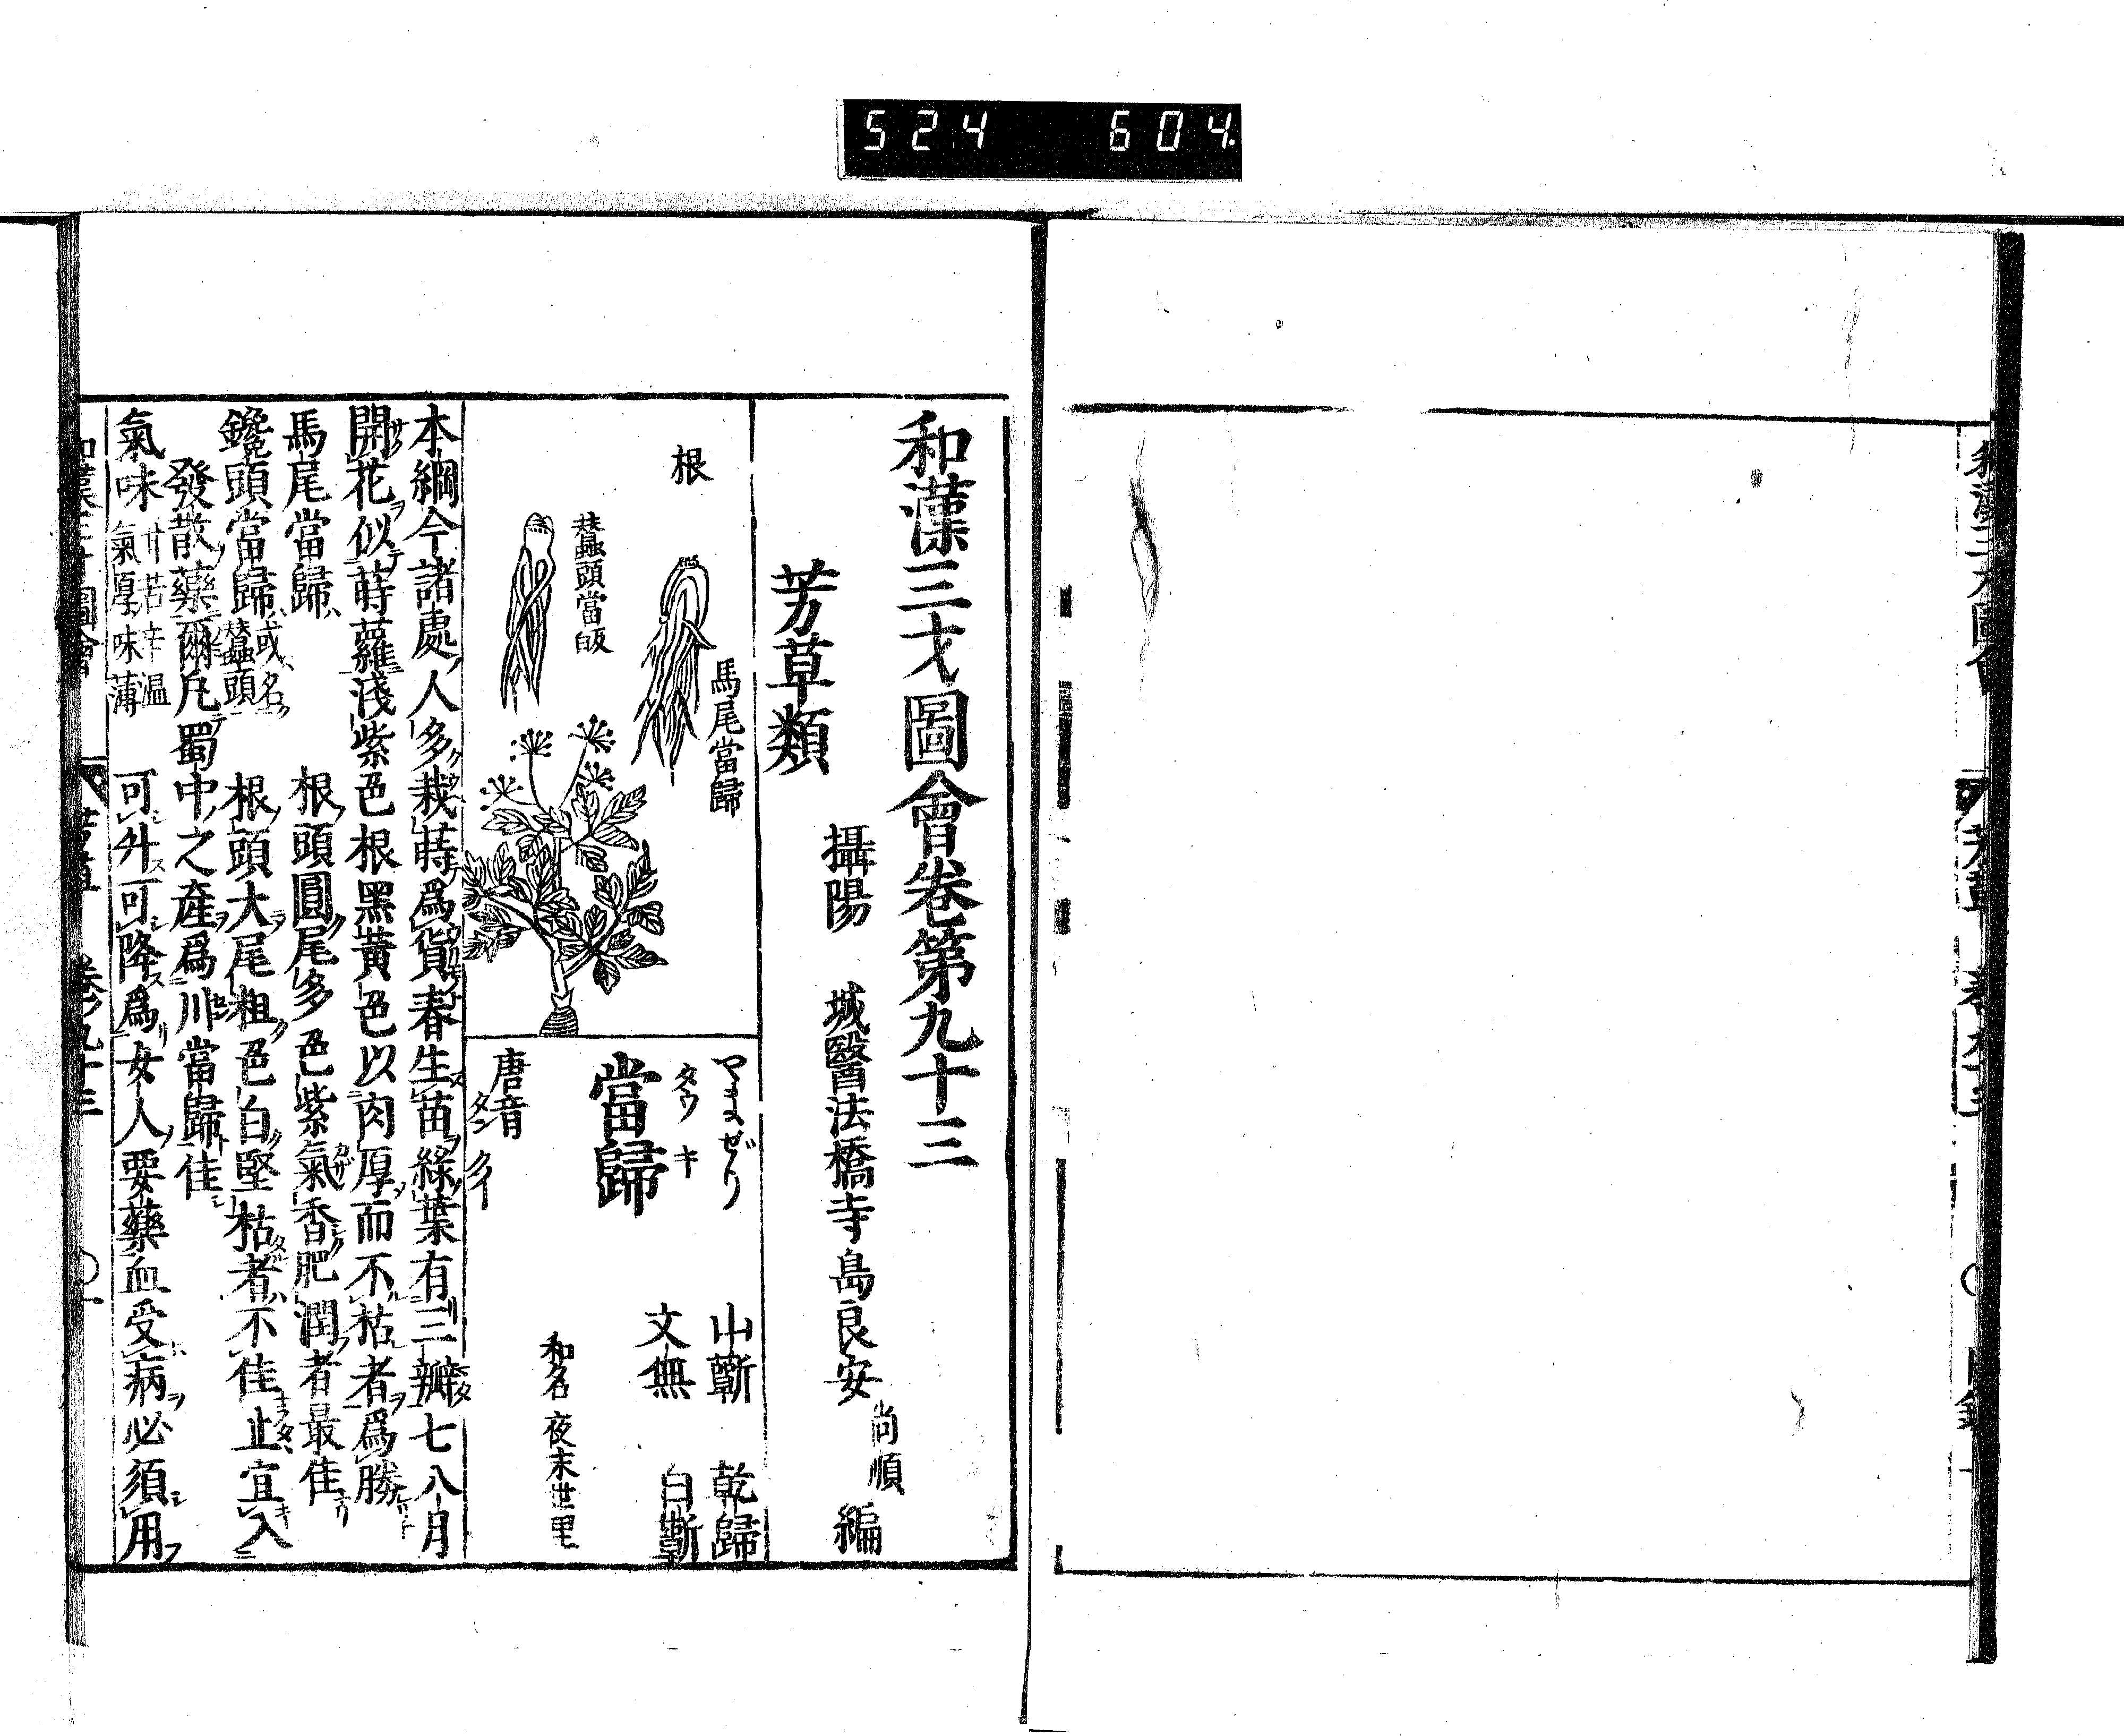 524 604.
和漢三才圖會卷第九十三
攝陽 城醫法橋寺島良安尚順 編
芳草類
根
馬尾當歸
蠶頭當皈
やまぜり
タウ キ
當歸
唐音 タン クイ
山蘄 乾歸
文無 白蘄
和名 夜末世里
本綱今諸處人多栽蒔爲貨春生苗綠葉有三瓣七八月
開花似蒔蘿淺紫色根黑黃色以肉厚而不枯者爲勝
馬尾當歸 根頭圓尾多色紫氣香肥潤者最佳
鑱頭當歸 或名蠶頭 根頭大尾粗色白堅枯者不佳止宜入
發散藥爾凡蜀中之產爲川當歸佳
氣味 甘苦辛温氣厚味薄 可升可降爲女人要藥血受病必須用